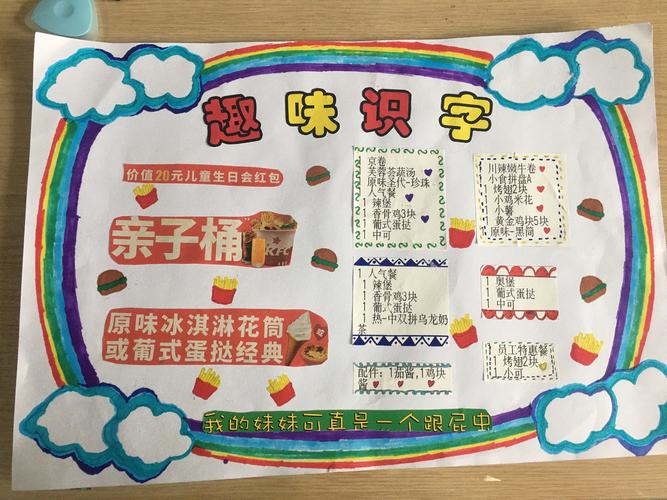 趣味识字
价值20元儿童生日会红包
亲子桶
原味冰淇淋花筒
或葡式蛋挞经典
京卷
芙蓉荟蔬汤
原味圣代-珍珠
人气餐
1 辣堡
1 香骨鸡3块
1 葡式蛋挞
1 中可
川辣嫩牛卷
小食拼盘A
1 烤翅2块
1 小鸡米花
1 小薯
1 黄金鸡块5块
原味-黑筒
1 人气餐
1 辣堡
1 香骨鸡3块
1 葡式蛋挞
1 热-中双拼乌龙奶
茶
1 奥堡
1 葡式蛋挞
1 中可
配件：1茄酱,1鸡块
酱
员工特惠餐
1 烤翅2块
1 小可
我的妹妹可真是一个跟屁虫